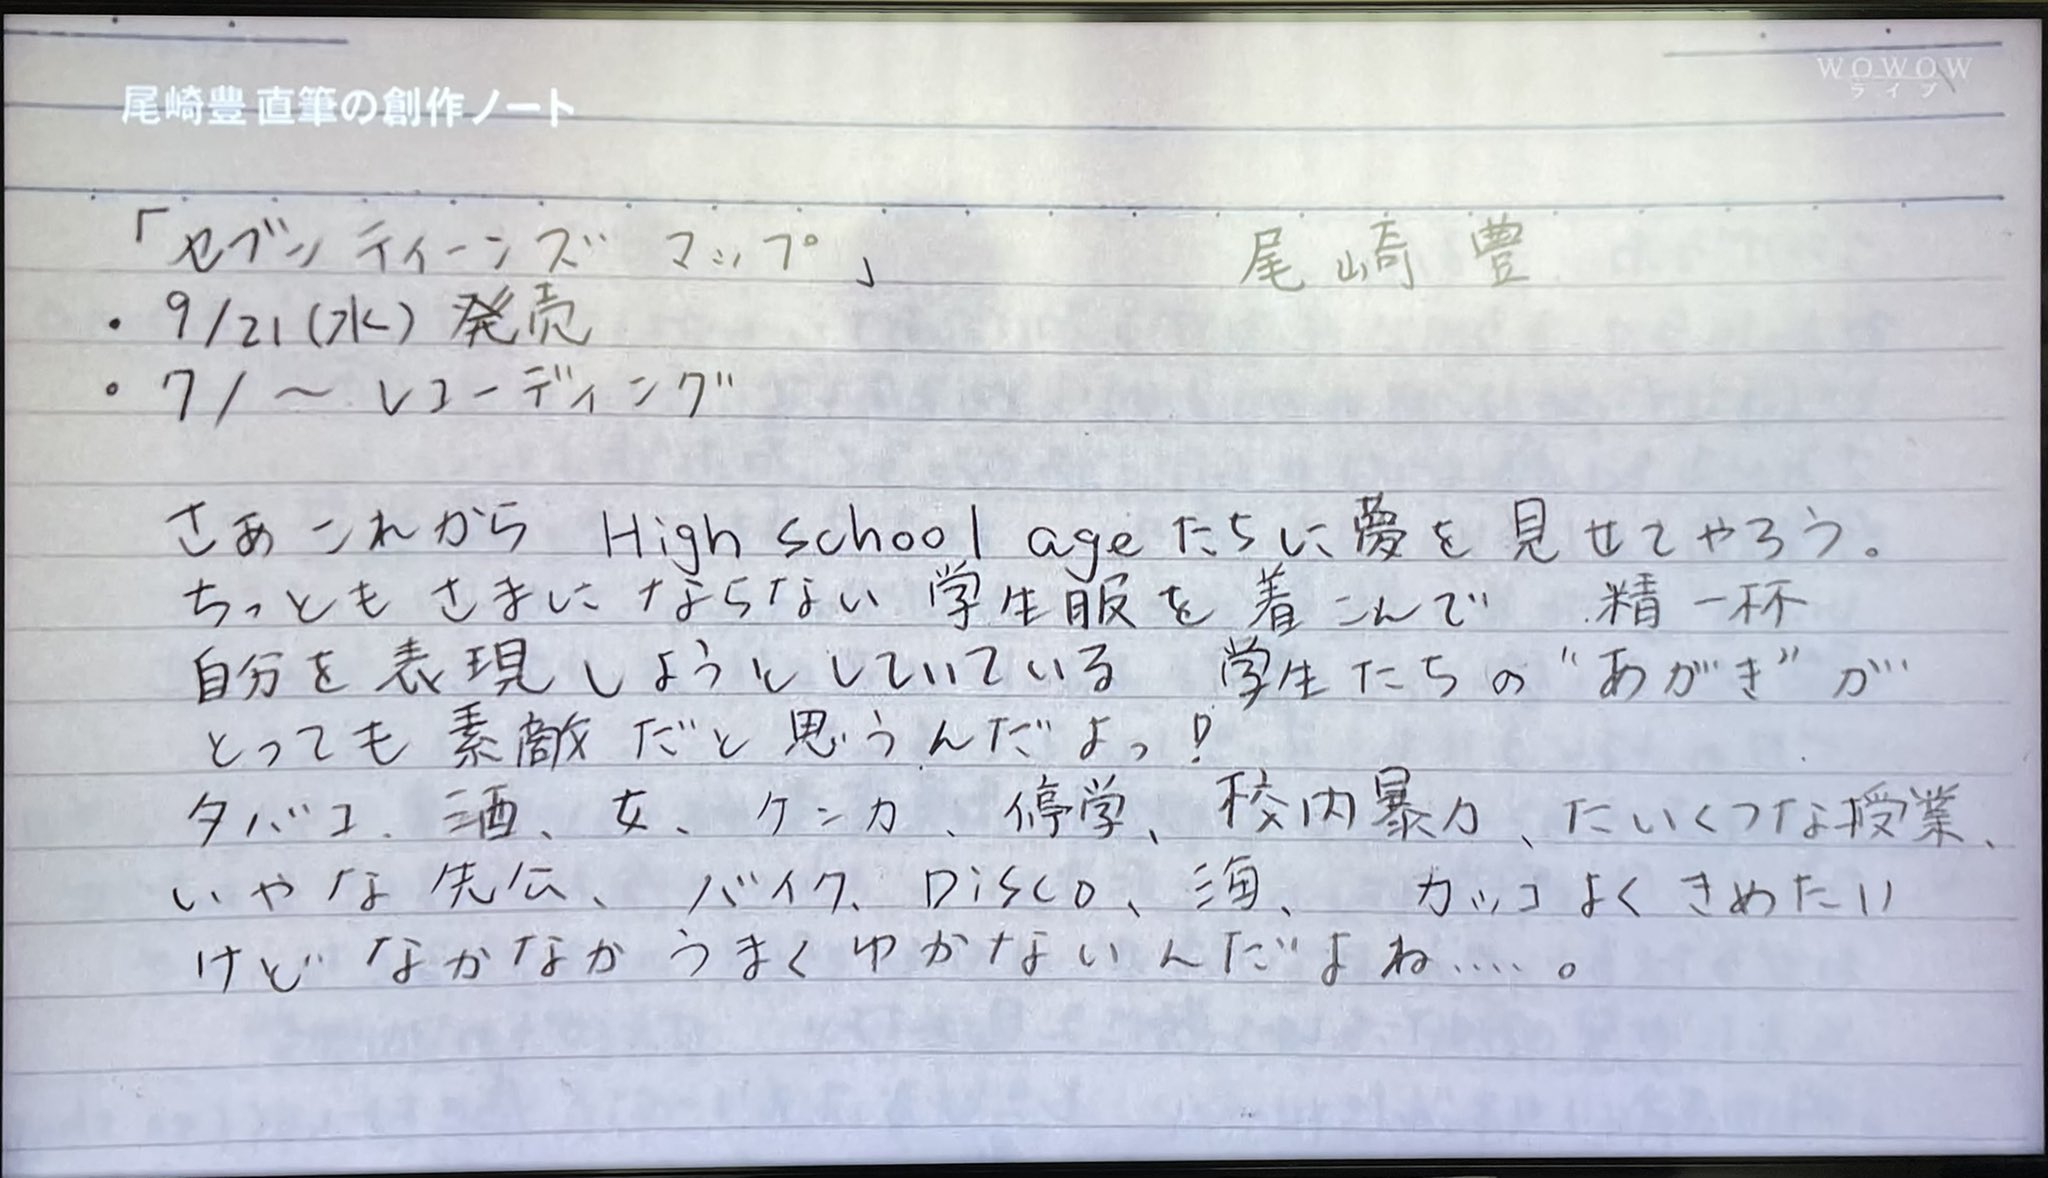 WOWOW
ライブ
尾崎豊 直筆の創作ノート
「セブンティーンズ マップ」 尾崎豊
・9/21(水)発売
・7/〜レコーディング
さあこれから High school ageたちに夢を見せてやろう。
ちっともさまにならない学生服を着こんで 精一杯
自分を表現しようとしていている 学生たちの"あがき"が
とっても素敵だと思うんだよっ!
タバコ、酒、女、ケンカ、停学、校内暴力、たいくつな授業、
いやな先公、バイク、Disco、海、カッコよくきめたい
けどなかなかうまくゆかないんだよね……。